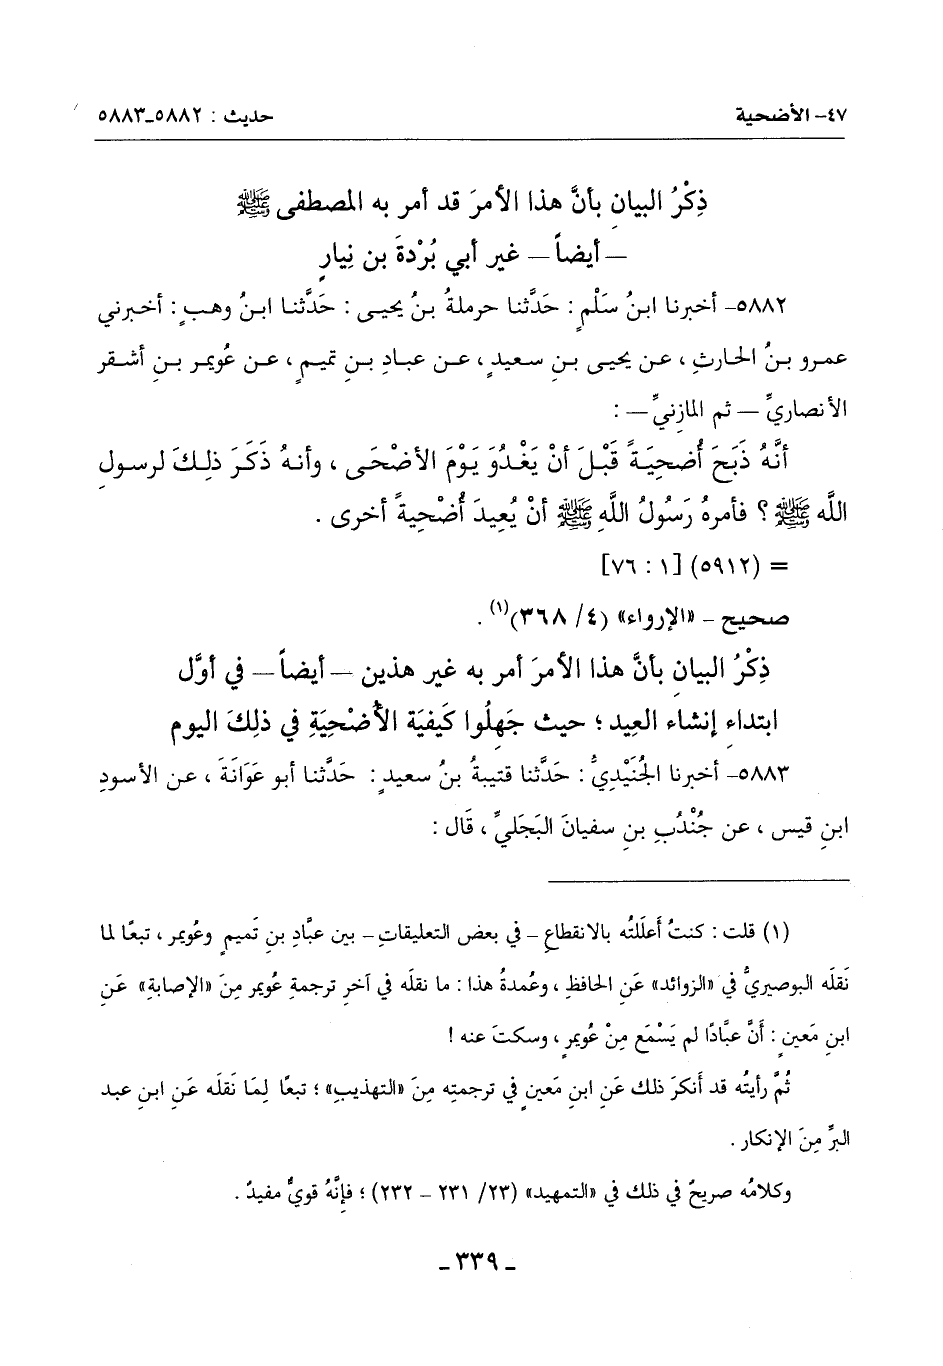 ٤٧- الأضحية
حديث : ٥٨٨٢-٥٨٨٣
ذِكْرُ البيانِ بأنَّ هذا الأمرَ قد أمر به المصطفى ﷺ
– أيضاً – غير أبي بُرْدةَ بن نِيارٍ
٥٨٨٢- أخبرنا ابنُ سَلْمٍ : حَدَّثنا حرملةُ بنُ يحيى : حَدَّثنا ابنُ وهبٍ : أخبرني
عمرو بنُ الحارثِ ، عن يحيى بنِ سعيدٍ ، عن عبادِ بنِ تميمٍ ، عن عُويمرِ بنِ أشقر
الأنصاريِّ – ثم المازنيِّ – :
أنَّهُ ذَبَحَ أُضحِيَةً قَبْلَ أنْ يَغْدُوَ يَوْمَ الأضْحَى ، وأنهُ ذَكَرَ ذلِكَ لرسولِ
اللَّه ﷺ ؟ فأمرهُ رَسُولُ اللَّهِ ﷺ أنْ يُعِيدَ أُضْحِيةً أخرى .
= (٥٩١٢) [١ : ٧٦]
صحيح - «الإرواء» (٤/ ٣٦٨)(١) .
ذِكْرُ البيانِ بأنَّ هذا الأمرَ أمر به غير هذين – أيضاً – في أوَّل
ابتداءِ إنشاء العِيد ؛ حيث جَهِلُوا كَيفيَة الأُضْحِيَةِ في ذلِكَ اليومِ
٥٨٨٣- أخبرنا الجُنَيْدِيُّ : حَدَّثنا قتيبةُ بنُ سعيدٍ : حَدَّثنا أبو عَوَانَةَ ، عن الأسودِ
ابنِ قيس ، عن جُنْدُبِ بنِ سفيانَ البَجَليِّ ، قَال :
(١) قلت : كنتُ أعلَلتُه بالانقطاعِ - في بعض التعليقاتِ - بين عبَّاد بنِ تَميمٍ وعُويمر ، تبعًا لما
نَقلَه البوصيريُّ في «الزوائد» عَنِ الحافظِ ، وعُمدةُ هذا : ما نقلَه في آخرِ ترجمةِ عُويمر مِنَ «الإصابةِ» عَنِ
ابنِ مَعينٍ : أنَّ عبَّادًا لم يَسْمَع مِنْ عُويمرٍ ، وسكتَ عنه !
ثُمَّ رأيتُه قد أنكرَ ذلك عَنِ ابنِ مَعينٍ في ترجمتِه مِنَ «التهذيبِ» ؛ تبعًا لِمَا نَقلَه عَنِ ابنِ عبد
البرِّ مِنَ الإنكار .
وكلامُه صريحٌ في ذلك في «التمهيد» (٢٣/ ٢٣١ - ٢٣٢) ؛ فإنَّهُ قويٌّ مفيدٌ .
- ٣٣٩ -